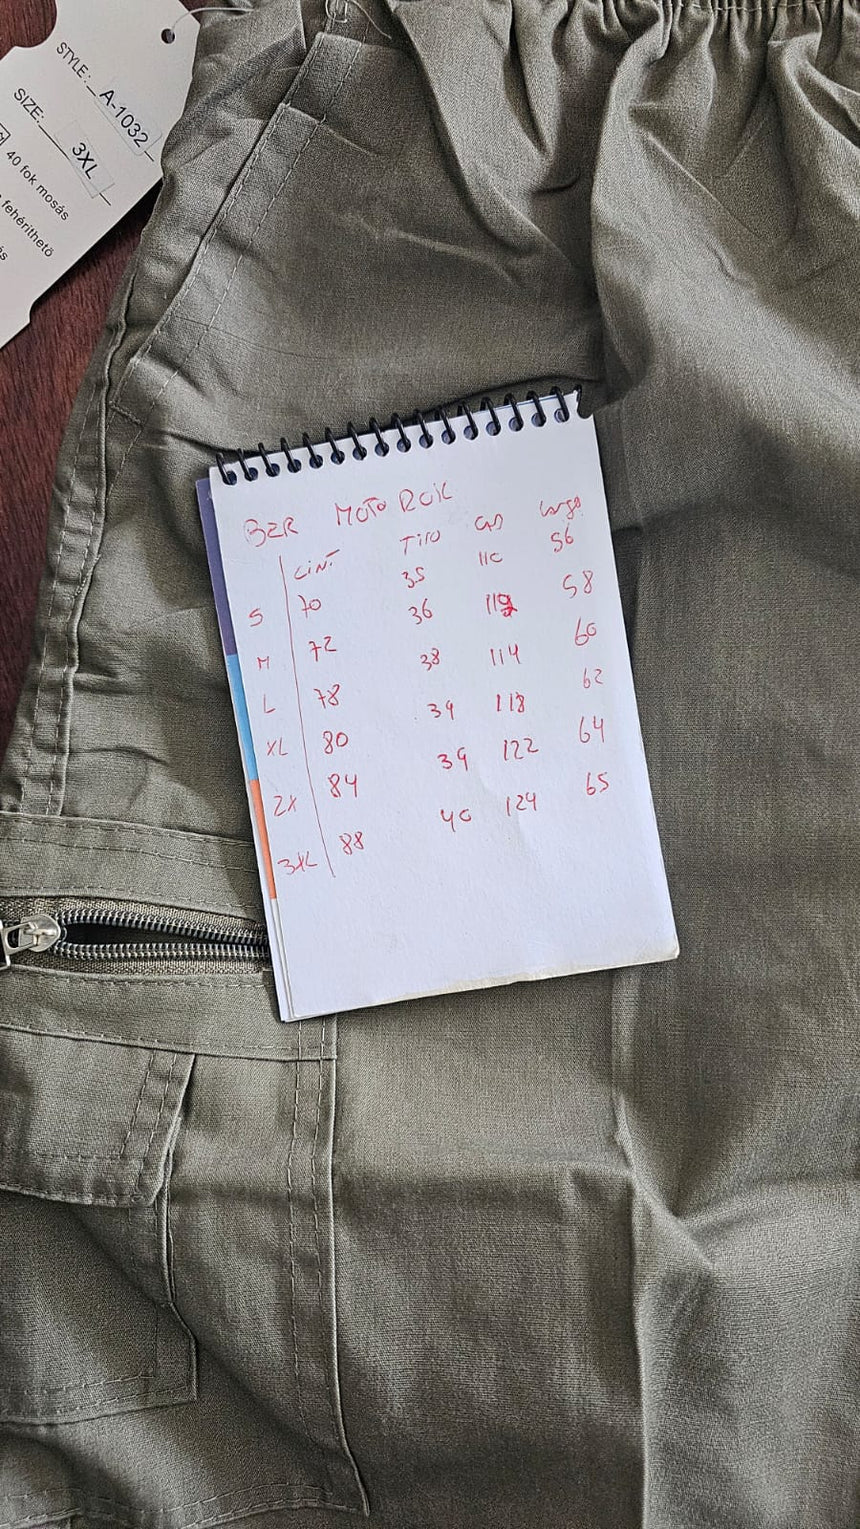 STYLE: A-1032
SIZE: 3XL
40 fok mosás
fehéríthető
BER MOTO ROIL
CINT TIRO CAD Largo
S 70 35 110 56
M 72 36 112 58
L 78 38 114 60
XL 80 39 118 62
2X 84 39 122 64
3XL 88 40 124 65